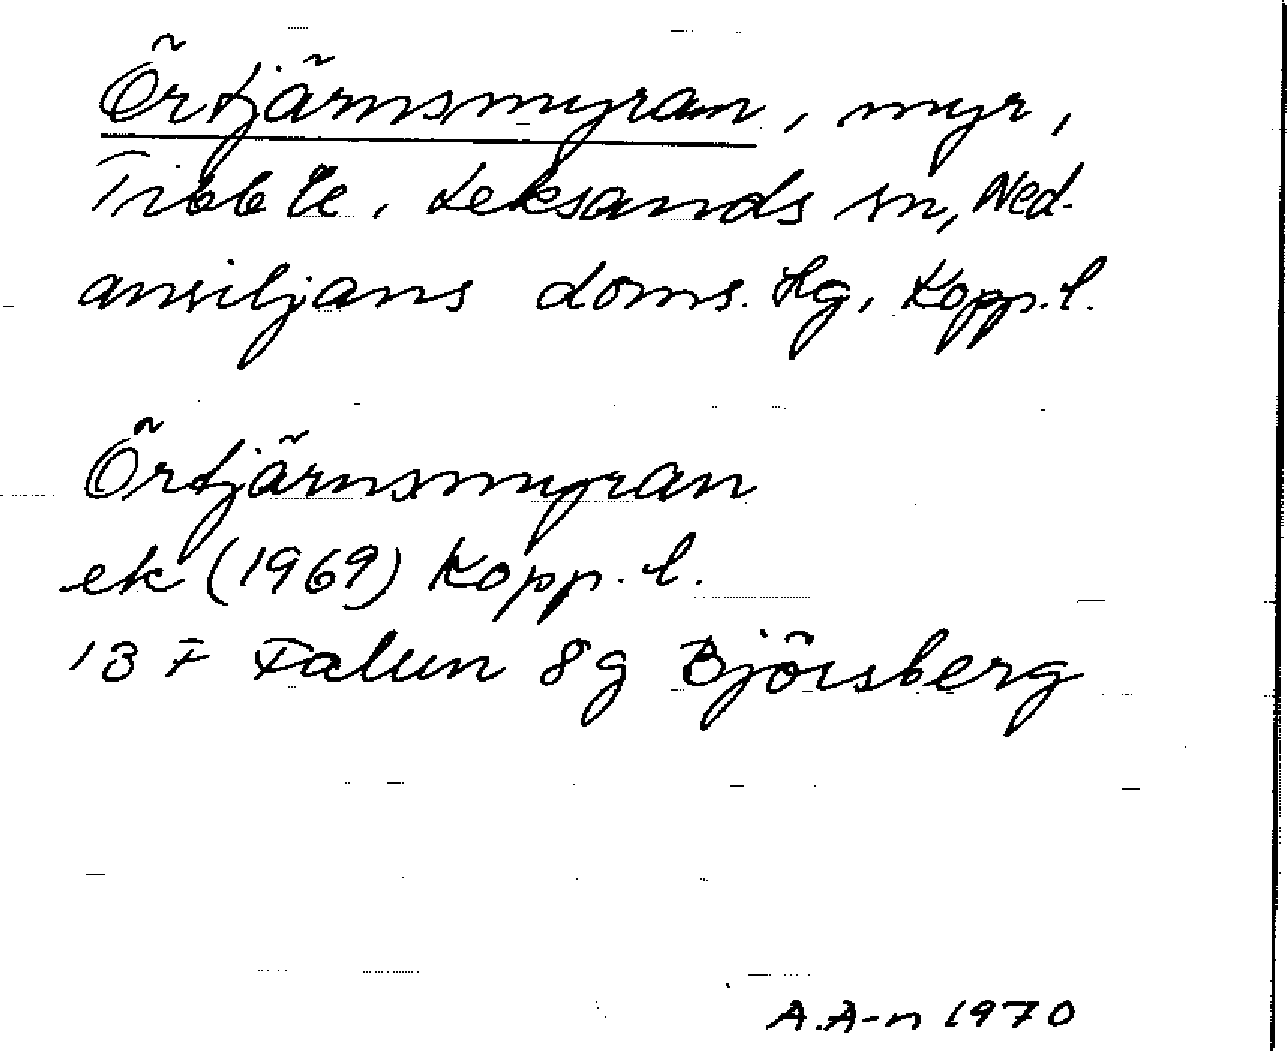 Örtjärnsmyran, myr,
Tibble, Leksands sn, Ned-
ansiljans doms. tg, Kopp. l.
Örtjärnsmyran
ek (1969) Kopp. l.
13 F Falun 8g Björsberg
A.A-n 1970